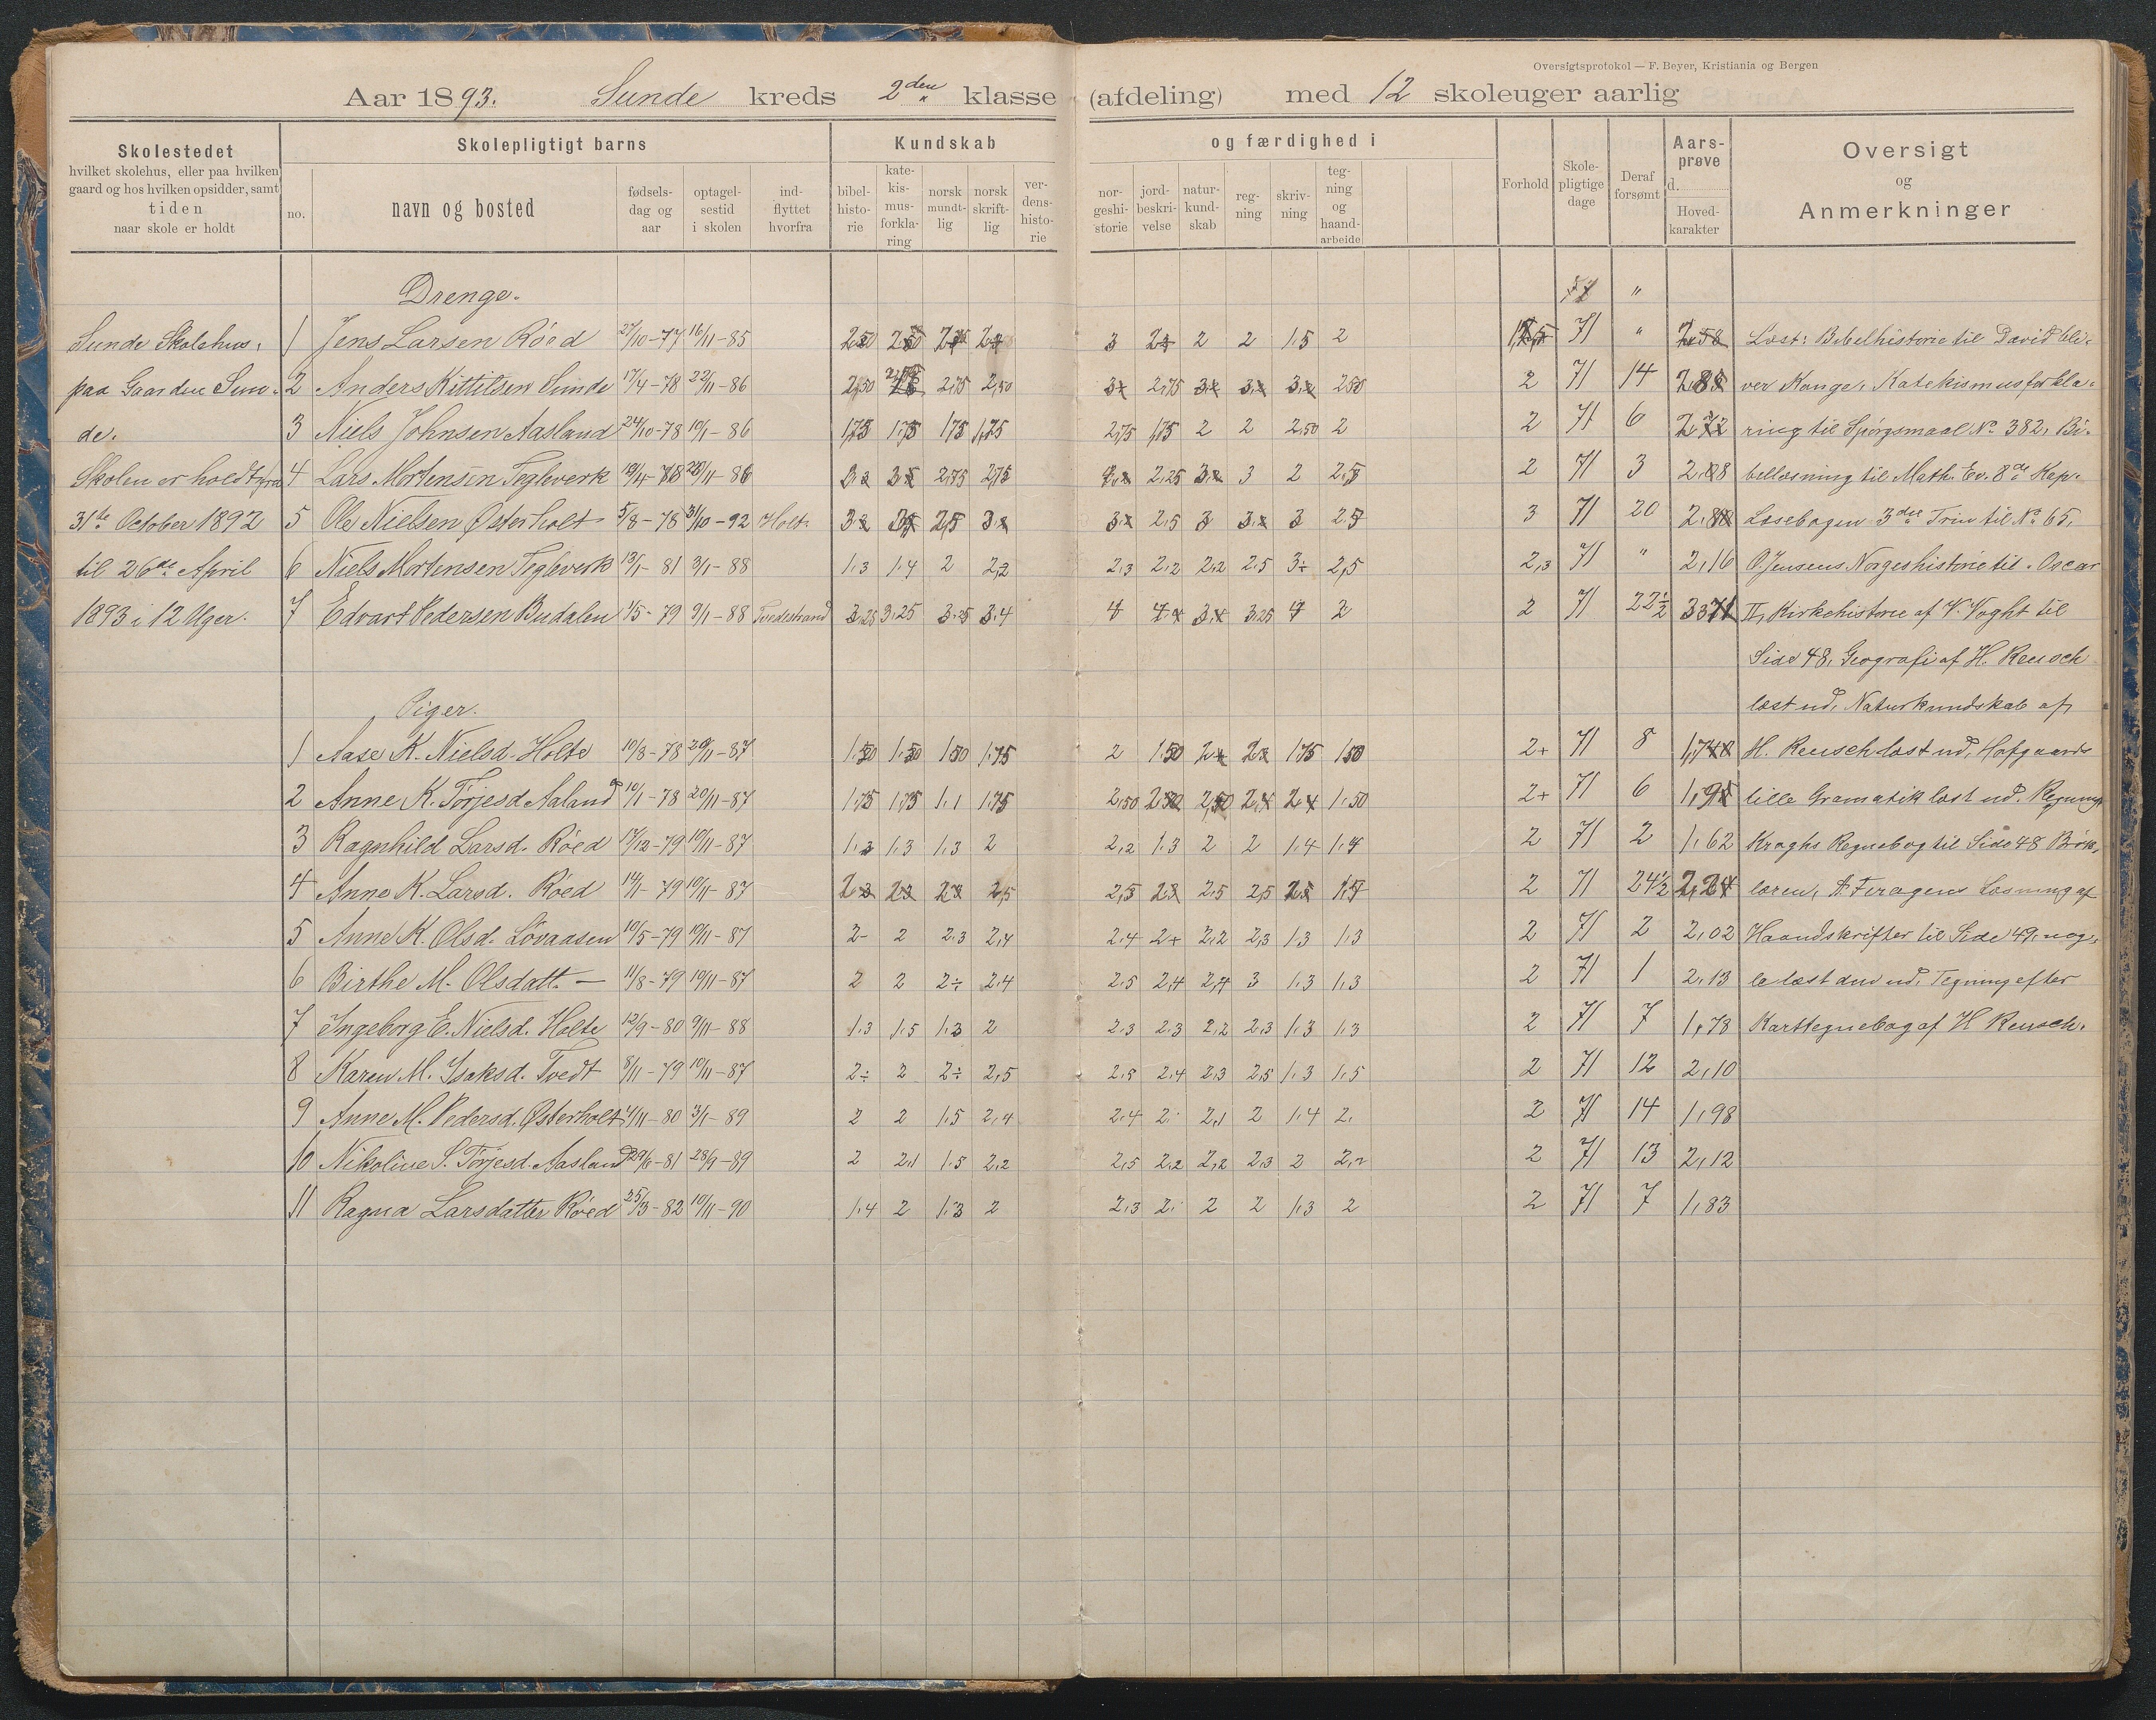 Oversigtsprotokol — F. Beyer, Kristiania og Bergen
Aar 1893. Sunde kreds 2den klasse (afdeling) med 12 skoleuger aarlig
Skolestedet
hvilket skolehus, eller paa hvilken
gaard og hos hvilken opsidder, samt
tiden
naar skole er holdt
Skolepligtigt barns
no.
navn og bosted
fødsels-
dag og
aar
optagel-
sestid
i skolen
ind-
flyttet
hvorfra
Kundskab
bibel-
histo-
rie
kate-
kis-
mus-
forkla-
ring
norsk
mundt-
lig
norsk
skrift-
lig
ver-
dens-
histo-
rie
og færdighed i
nor-
geshi-
storie
jord-
beskri-
velse
natur-
kund-
skab
reg-
ning
skriv-
ning
teg-
ning
og
haand-
arbeide
Forhold
Skole-
pligtige
dage
Deraf
forsømt
Aars-
prøve
d.
Hoved-
karakter
Oversigt
og
Anmerkninger
Drenge. "
Sunde Skolehus, 1 Jens Larsen Röed 27/10-77 16/11-85 3 2 2 1.5 2 71 " 2,58 Læst: Bibelhistorie til David bli-
paa Gaarden Sun- 2 Anders Kittilsen Sunde 17/4-78 22/11-86 2,50 2,75 2,50 2,75 2,50 2 71 14 ver Konge, Katekismusforkla-
de. 3 Niels Johnsen Aasland 24/10-78 19/1-86 1,75 1,75 1,75 1,75 2,75 1,75 2 2 2,50 2 2 71 6 2,72 ring til Spörgsmaal No 382, Bi-
Skolen er holdt fra 4 Lars Mortensen Teglverk 2,75 2,75 2,25 3 2 2,5 2 71 3 bellæsning til Math. Ev. 8de Kap.
31te October 1892 5 Ole Nielsen Østerholt 5/8-78 31/10-92 Holt. 2,5 2,5 3 3 2,5 3 71 20 Læsebogen 3die Trin til No 65,
til 26de April 6 Niels Mortensen Teglverk 13/1-81 3/1-88 1.3 1.4 2 2,2 2,3 2,2 2,2 2.5 3÷ 2,5 2,3 71 " 2,16 O. Jensens Norgeshistorie til Oscar
1893 i 12 Uger. 7 Edvart Pedersen Budalen 1/5-79 9/1-88 Tvedestrand 3,25 3,25 3,25 3,4 4 3,25 4 2 2 71 22½ II, Kirkehistorie af V. Voght til
Side 48, Geografi af H. Reusch
Piger. læst ud, Naturkundskab af
1 Aase K. Nielsd. Holte 10/8-78 20/11-87 1.50 1.50 1.50 1.75 2 1.50 1.75 1.50 2+ 71 8 H. Reusch læst ud, Hofgaards
2 Anne K. Törjesd. Aaland 10/1-78 20/11-87 1.75 1.75 1.1 1.75 2,50 2,50 2,50 2,4 2,4 1.50 2+ 71 6 1,95 lille Gramatik læst ud. Regning
3 Ragnhild Larsd. Röed 17/12-79 10/11-87 1.3 1.3 1.3 2 2,2 1.3 2 2 1.4 1.4 2 71 2 1,62 Kraghs Regnebog til Side 48 Brök,
4 Anne K. Larsd. Röed 14/11-79 10/11-87 2,5 2,5 2,5 2,5 1.5 2 71 24½ 2,24 læren, A. Feragens Læsning af
5 Anne K. Olsd. Lövaasen 10/5-79 10/11-87 2- 2 2.3 2,4 2.4 2+ 2,2 2,3 1.3 1.3 2 71 2 2,02 Haandskrifter til Side 49, nog-
6 Birthe M. Olsdatt. — 11/8-79 10/11-87 2 2 2÷ 2.4 2.5 2,4 2,4 3 1.3 1.3 2 71 1 2,13 le læst den ud, Tegning efter
7 Ingeborg E. Nielsd. Holte 12/9-80 9/11-88 1.3 1.5 1.3 2 2.3 2.3 2,2 2.3 1.3 1.3 2 71 7 1,78 Karttegnebog af H Reusch.
8 Karen M. Isaksd. Tvedt 8/11-79 10/11-87 2÷ 2 2÷ 2,5 2.5 2.4 2.3 2.5 1.3 1.5 2 71 12 2,10
9 Anne M. Pedersd. Østerholt 4/11-80 3/1-89 2 2 1.5 2,4 2.4 2. 2,1 2 1.4 2. 2 71 14 1,98
10 Nikoline S. Törjesd. Aasland 29/6-81 28/9-89 2 2,1 1.5 2,2 2,5 2,2 2,2 2.3 2 2,2 2 71 13 2,12
11 Ragna Larsdatter Röed 25/3-82 10/11-90 1.4 2 1.3 2 2.3 2. 2 2 1.3 2 2 71 7 1,83